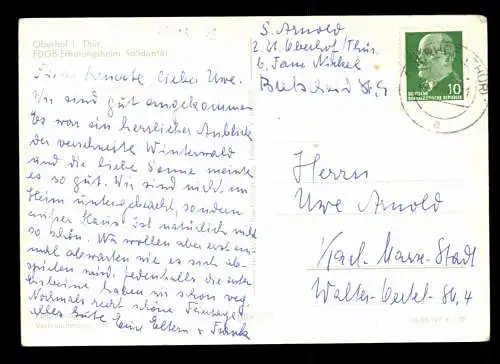 Oberhof i. Thür.
FDGB-Erholungsheim Solidarität
S. Arnold
z. Zt. Oberhof/Thür.
b. Fam.
DEUTSCHE
DEMOKRATISCHE REPUBLIK
10
lieber Uwe.
Wir sind gut angekommen
Es war ein herrlicher Anblick
der verschneite Winterwald
und die liebe Sonne meinte
es so gut. Wir sind nicht im
Heim untergebracht, sondern
außer Haus ist natürlich nicht
so schön. Wir wollen aber erst ein-
mal abwarten wie es sich ab-
spielen wird. Jedenfalls die
beine haben wir schon weg.
Nochmals recht schöne
alles Gute Deine Eltern + Frank
Herrn
Uwe Arnold
Karl-Marx-Stadt
Walter-Oertel-Str. 4